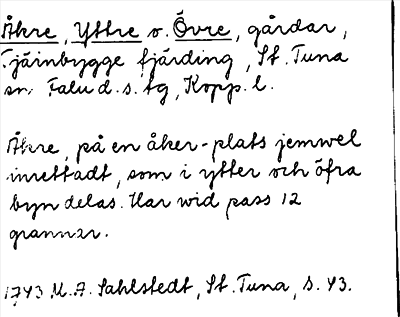 Åkre, Yttre o. Övre, gårdar,
Tjärnbygge fjärding, St. Tuna
sn. Falu d.s. tg, Kopp. l.
Åkre, på en åker-plats jemwel
inrettadt, som i ytter och öfra
byn delas. Har wid pass 12
grannar.
1743 M.A. Sahlstedt, St. Tuna, s. 43.